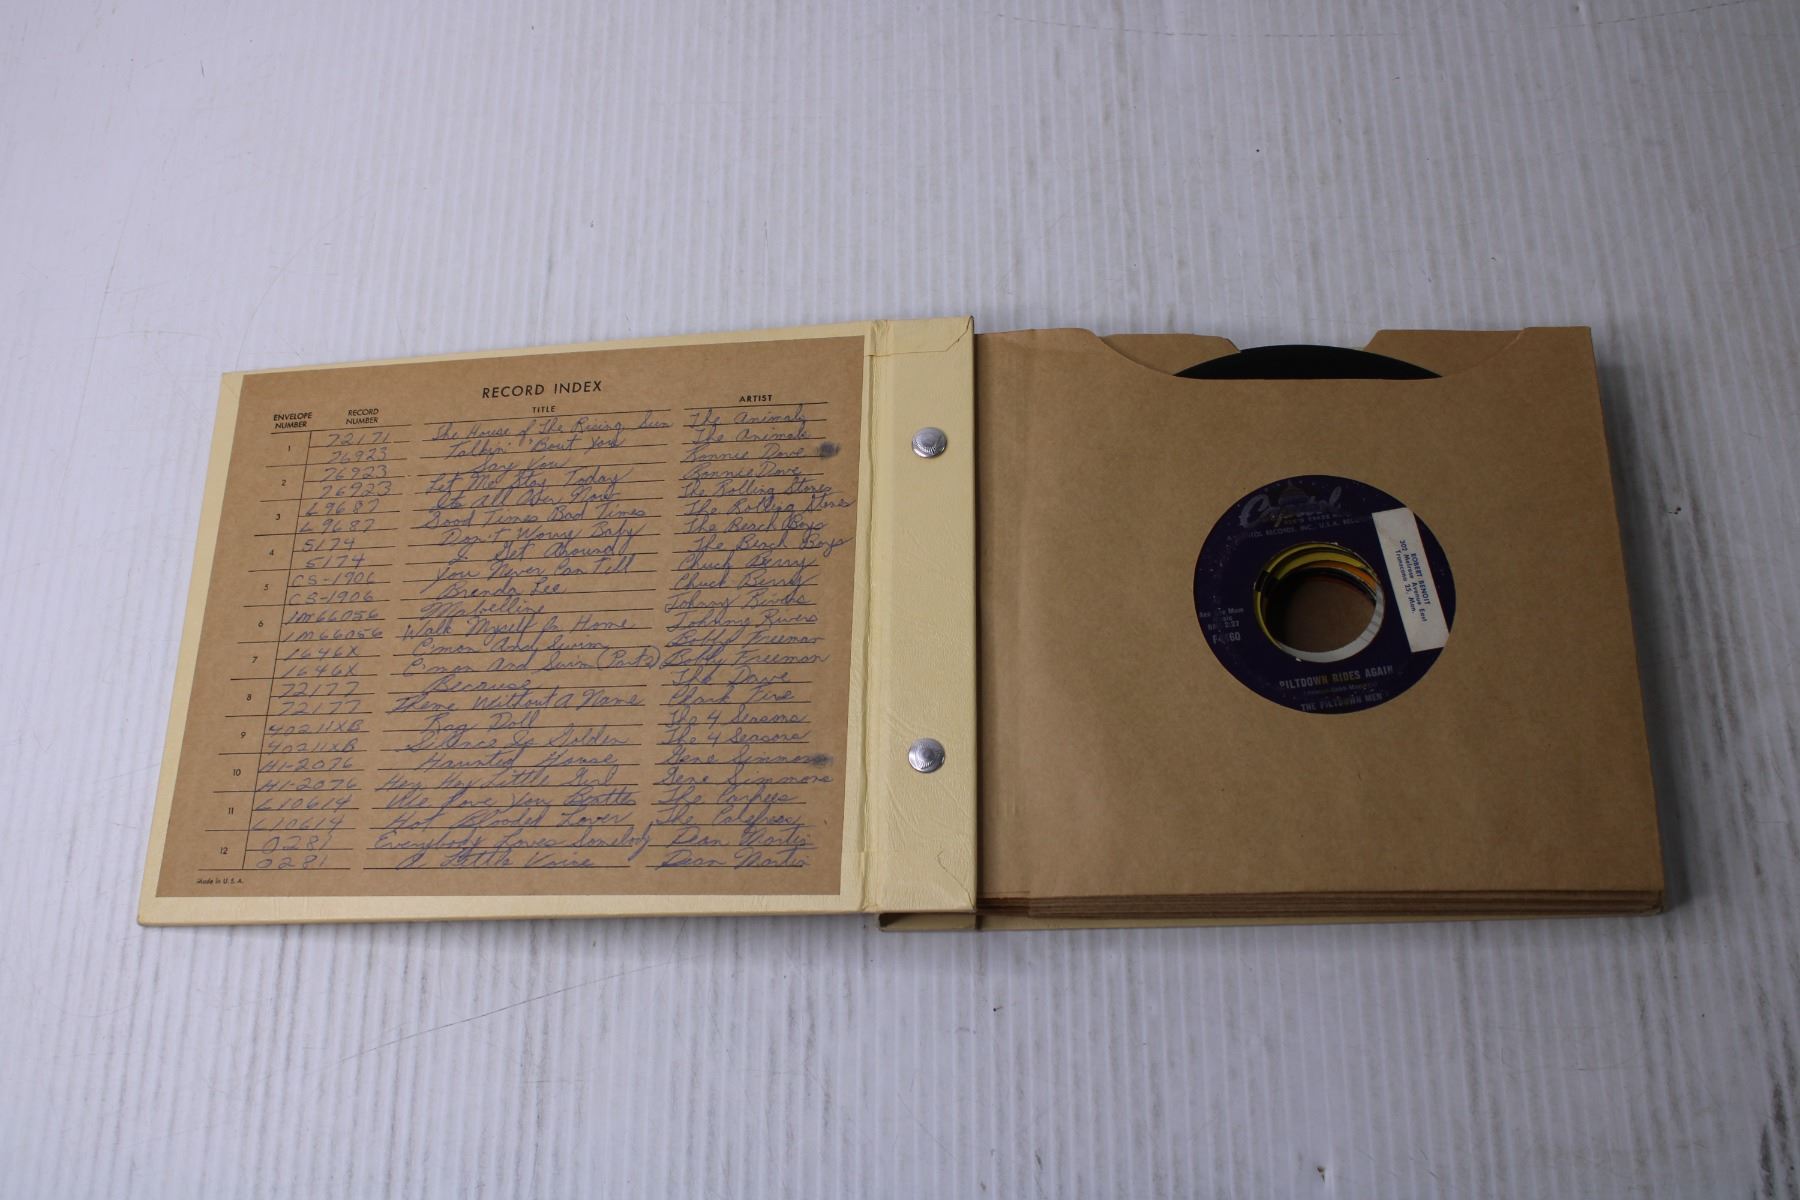 RECORD INDEX
ENVELOPE NUMBER RECORD NUMBER TITLE ARTIST
1 72171 The House of The Rising Sun The Animals
76923 Talkin' 'Bout You The Animals
2 76923 Say You Ronnie Dove
76923 Let Me Stay Today Ronnie Dove
3 L9687 Its All Over Now The Rolling Stones
L9687 Good Times Bad Times The Rolling Stones
4 5174 Don't Worry Baby The Beach Boys
5174 I Get Around The Beach Boys
5 CS-1906 You Never Can Tell Chuck Berry
CS-1906 Brenda Lee Chuck Berry
6 IM66056 Mabelline Johnny Rivers
IM66056 Walk Myself On Home Johnny Rivers
7 1646X C'mon And Swim Bobby Freeman
1646X C'mon And Swim (Part 2) Bobby Freeman
8 72177 Because The Dave
72177 Theme Without A Name Clark Five
9 40211XB Rag Doll The 4 Seasons
40211XB Silence Is Golden The 4 Seasons
10 HI-2076 Haunted House Gene Simmons
HI-2076 Hey, Hey Little Girl Gene Simmons
11 L10614 We Love You Beatles The
L10614 Hot Blooded Lover The
12 0281 Everybody Loves Somebody Dean Martin
0281 A Little Voice Dean Martin
Made in U.S.A.
Capitol
RECORDS, INC., U.S.A.
ROBERT BENOIT
302 Melrose Avenue East
Transcona 25, Man.
2:27
PILTDOWN RIDES AGAIN
THE PILTDOWN MEN